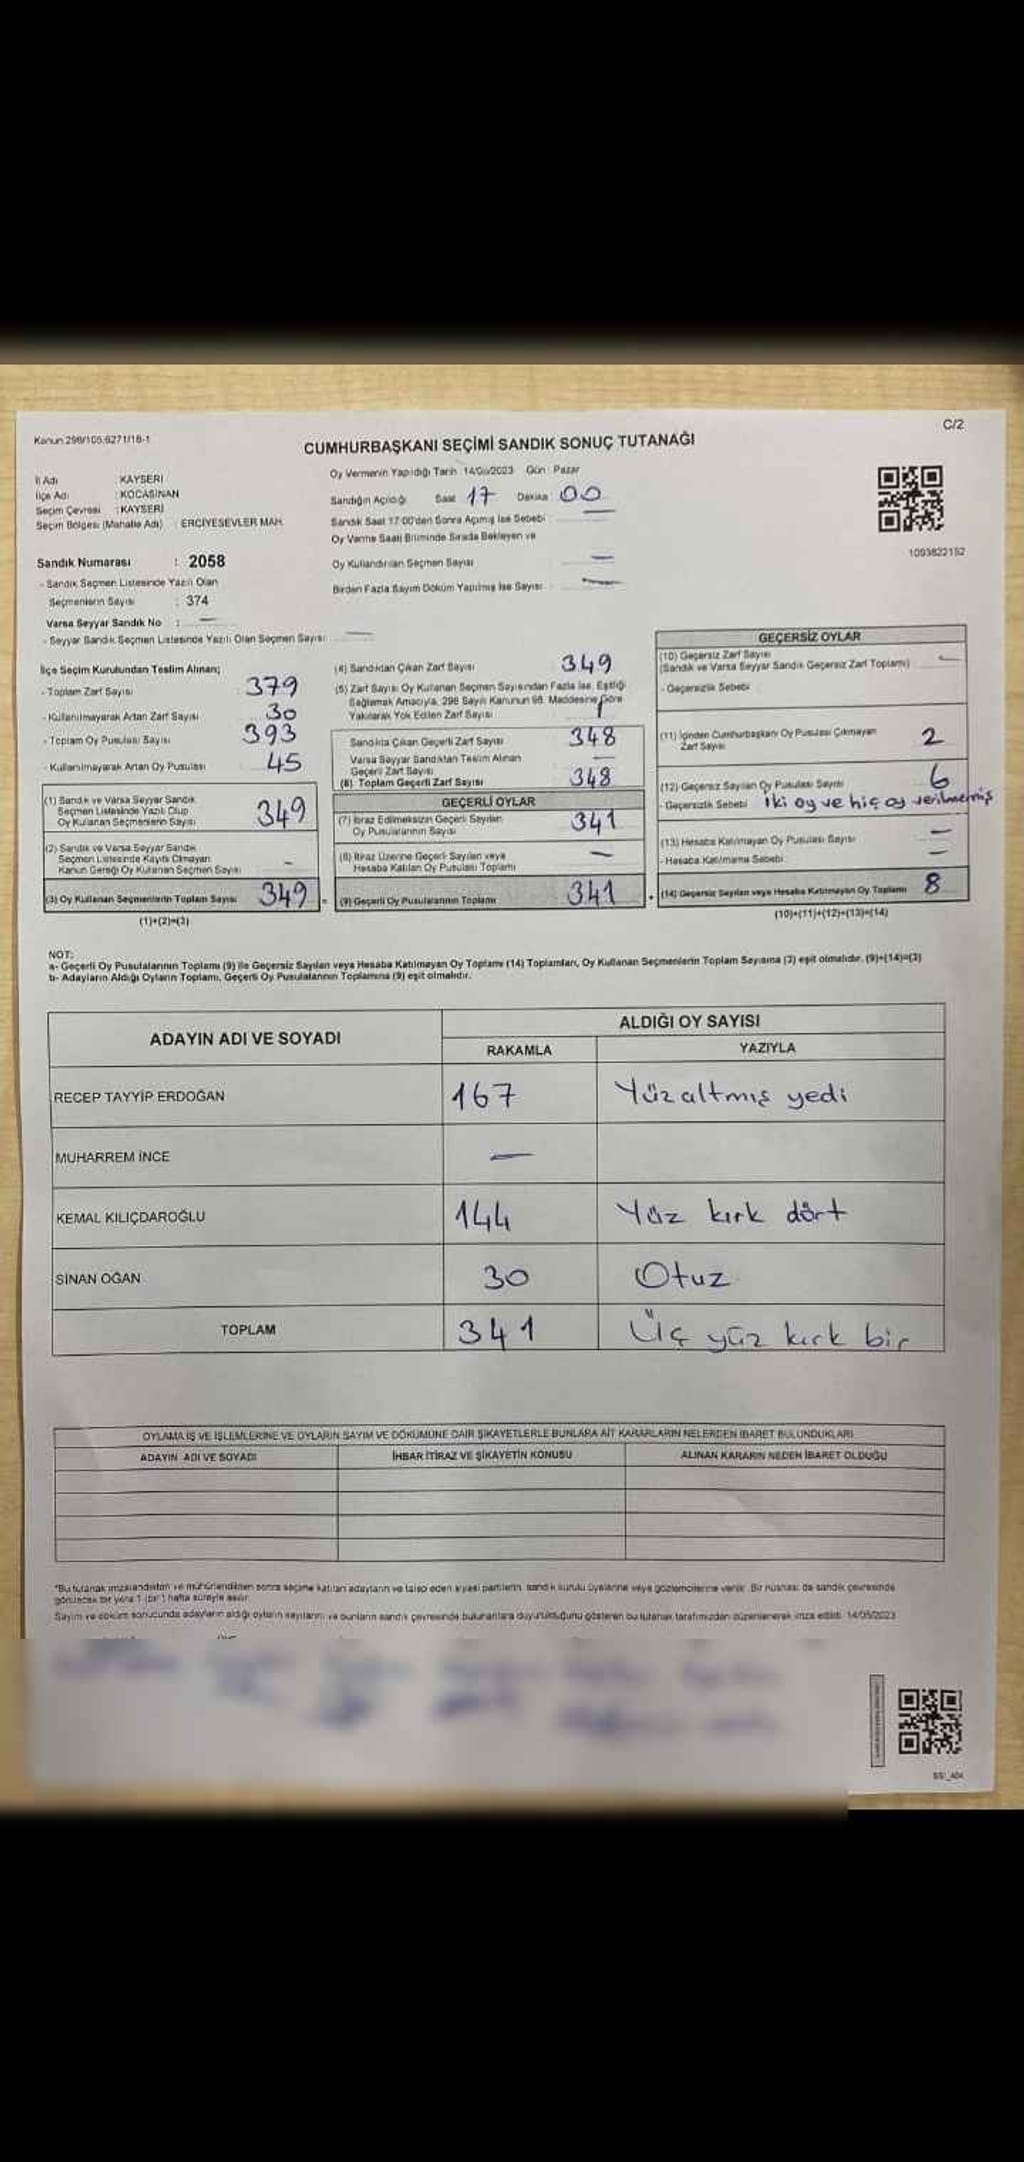 Kanun 298/105,6271/18-1
C/2
CUMHURBAŞKANI SEÇİMİ SANDIK SONUÇ TUTANAĞI
İl Adı : KAYSERİ
İlçe Adı : KOCASİNAN
Seçim Çevresi : KAYSERİ
Seçim Bölgesi (Mahalle Adı) : ERCİYESEVLER MAH.
Oy Vermenin Yapıldığı Tarih : 14/05/2023 Gün : Pazar
Sandığın Açıldığı Saat 17 Dakika 00
Sandık Saat 17:00'den Sonra Açılmış İse Sebebi —
Oy Verme Saati Bitiminde Sırada Bekleyen ve
Oy Kullandırılan Seçmen Sayısı —
Birden Fazla Sayım Döküm Yapılmış İse Sayısı —
1093822152
Sandık Numarası : 2058
- Sandık Seçmen Listesinde Yazılı Olan
Seçmenlerin Sayısı : 374
Varsa Seyyar Sandık No : —
- Seyyar Sandık Seçmen Listesinde Yazılı Olan Seçmen Sayısı —
İlçe Seçim Kurulundan Teslim Alınan;
- Toplam Zarf Sayısı 379
- Kullanılmayarak Artan Zarf Sayısı 30
- Toplam Oy Pusulası Sayısı 393
- Kullanılmayarak Artan Oy Pusulası 45
(1) Sandık ve Varsa Seyyar Sandık
Seçmen Listesinde Yazılı Olup
Oy Kullanan Seçmenlerin Sayısı 349
(2) Sandık ve Varsa Seyyar Sandık
Seçmen Listesinde Kayıtlı Olmayan
Kanun Gereği Oy Kullanan Seçmen Sayısı -
(3) Oy Kullanan Seçmenlerin Toplam Sayısı 349 =
(1)+(2)=(3)
(4) Sandıktan Çıkan Zarf Sayısı 349
(5) Zarf Sayısı Oy Kullanan Seçmen Sayısından Fazla İse, Eşitliği
Sağlamak Amacıyla, 298 Sayılı Kanunun 98. Maddesine Göre
Yakılarak Yok Edilen Zarf Sayısı
Sandıkta Çıkan Geçerli Zarf Sayısı 348
Varsa Seyyar Sandıktan Teslim Alınan
Geçerli Zarf Sayısı —
(6) Toplam Geçerli Zarf Sayısı 348
GEÇERLİ OYLAR
(7) İtiraz Edilmeksizin Geçerli Sayılan
Oy Pusulalarının Sayısı 341
(8) İtiraz Üzerine Geçerli Sayılan veya
Hesaba Katılan Oy Pusulası Toplamı —
(9) Geçerli Oy Pusulalarının Toplamı 341 +
GEÇERSİZ OYLAR
(10) Geçersiz Zarf Sayısı
(Sandık ve Varsa Seyyar Sandık Geçersiz Zarf Toplamı) —
- Geçersizlik Sebebi
(11) İçinden Cumhurbaşkanı Oy Pusulası Çıkmayan
Zarf Sayısı 2
(12) Geçersiz Sayılan Oy Pusulası Sayısı 6
- Geçersizlik Sebebi iki oy ve hiç oy verilmemiş
(13) Hesaba Katılmayan Oy Pusulası Sayısı —
- Hesaba Katılmama Sebebi —
(14) Geçersiz Sayılan veya Hesaba Katılmayan Oy Toplamı 8
(10)+(11)+(12)+(13)=(14)
NOT:
a- Geçerli Oy Pusulalarının Toplamı (9) ile Geçersiz Sayılan veya Hesaba Katılmayan Oy Toplamı (14) Toplamları, Oy Kullanan Seçmenlerin Toplam Sayısına (3) eşit olmalıdır. (9)+(14)=(3)
b- Adayların Aldığı Oyların Toplamı, Geçerli Oy Pusulalarının Toplamına (9) eşit olmalıdır.
ADAYIN ADI VE SOYADI
ALDIĞI OY SAYISI
RAKAMLA YAZIYLA
RECEP TAYYİP ERDOĞAN 167 Yüz altmış yedi
MUHARREM İNCE —
KEMAL KILIÇDAROĞLU 144 Yüz kırk dört
SİNAN OĞAN 30 Otuz
TOPLAM 341 Üç yüz kırk bir
OYLAMA İŞ VE İŞLEMLERİNE VE OYLARIN SAYIM VE DÖKÜMÜNE DAİR ŞİKAYETLERLE BUNLARA AİT KARARLARIN NELERDEN İBARET BULUNDUKLARI
ADAYIN ADI VE SOYADI İHBAR İTİRAZ VE ŞİKAYETİN KONUSU ALINAN KARARIN NEDEN İBARET OLDUĞU
*Bu tutanak imzalandıktan ve mühürlendikten sonra seçime katılan adayların ve talep eden siyasi partilerin, sandık kurulu üyelerine veya gözlemcilerine verilir. Bir nüshası da sandık çevresinde
görülecek bir yere 1 (bir) hafta süreyle asılır.
Sayım ve döküm sonucunda adayların aldığı oyların sayılarını ve bunların sandık çevresinde bulunanlara duyurulduğunu gösteren bu tutanak tarafımızdan düzenlenerek imza edildi. 14/05/2023